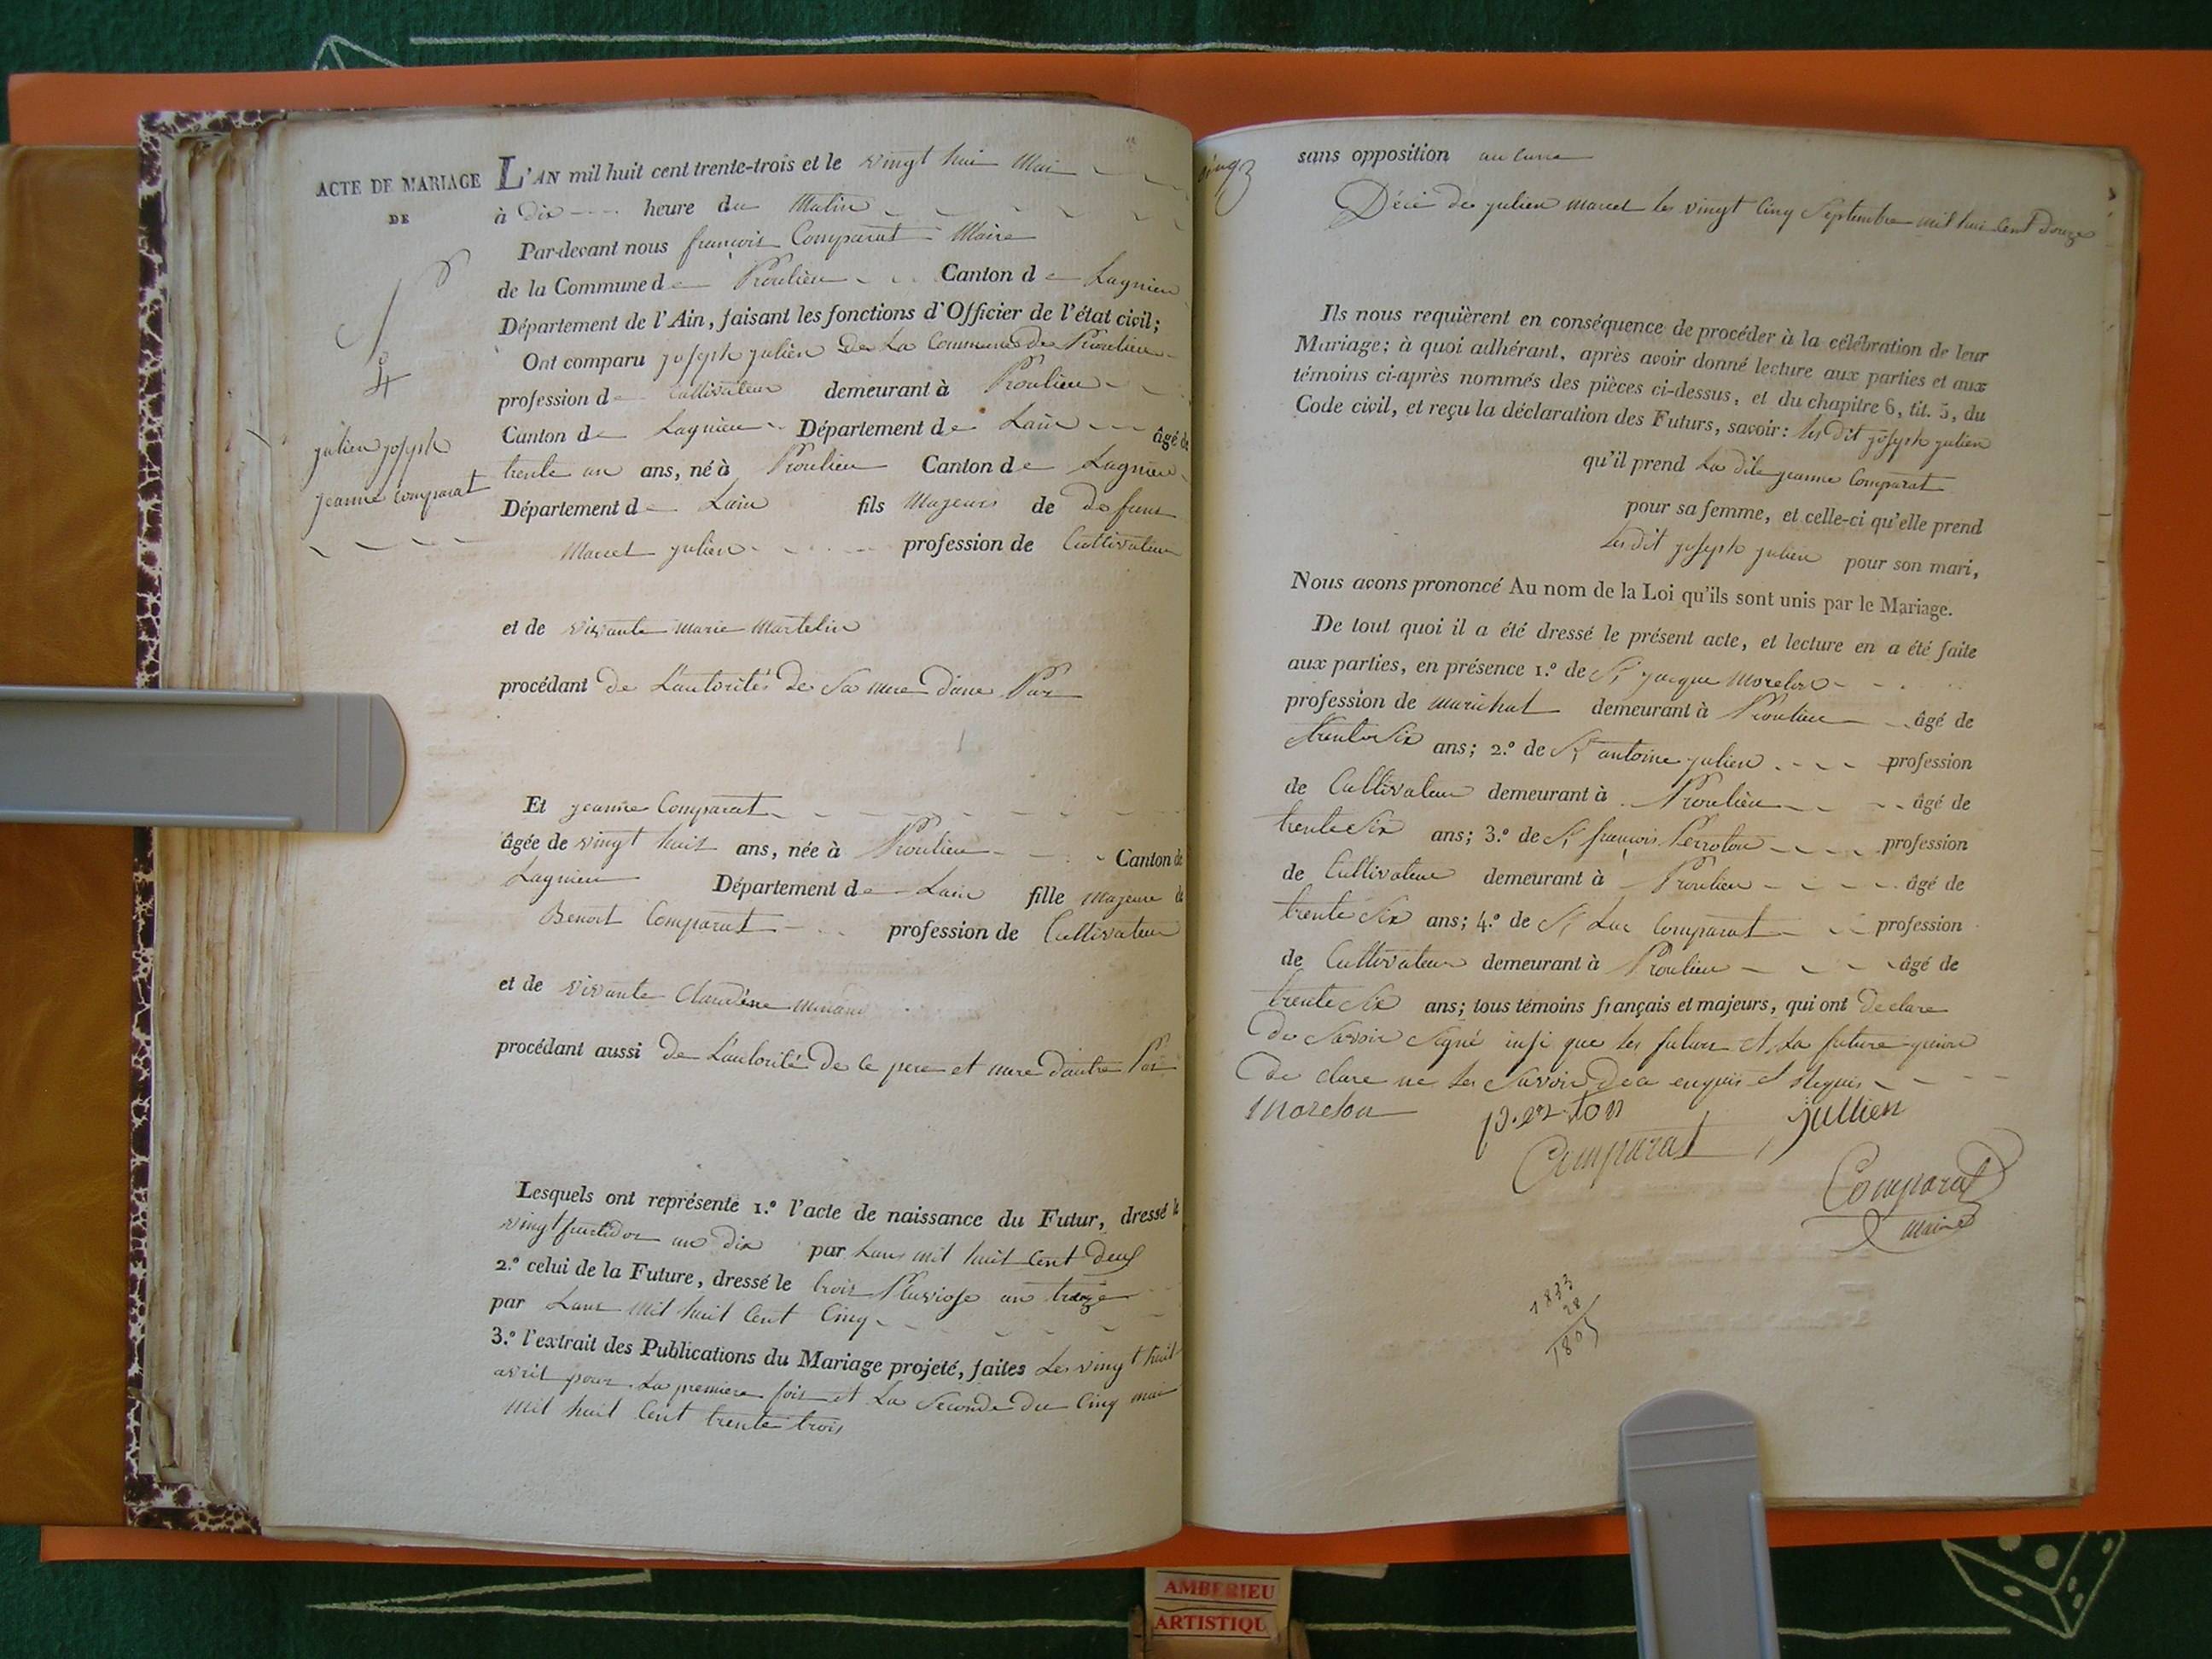 ACTE DE MARIAGE
DE
N.° 4
julien joseph
jeanne comparat
L'AN mil huit cent trente-trois et le vingt hui Mai
à Dix heure du Matin
Par-devant nous françois Comparat Maire
de la Commune de Proulieu Canton de Lagnieu
Département de l'Ain, faisant les fonctions d'Officier de l'état civil;
Ont comparu joseph julien De La Commune de Proulieu
profession de Cultivateur demeurant à Proulieu
Canton de Lagnieu Département de Lain âgé de
trente un ans, né à Proulieu Canton de Lagnieu
Département de Lain fils Majeur de defunt
Marcel julien profession de Cultivateur
et de vivante Marie Martelin
procédant de L'autorités de Sa mere Dune Par
Et jeanne Comparat
âgée de vingt huit ans, née à Proulieu Canton de
Lagnieu Département de Lain fille Majeure de
Benoit Comparat profession de Cultivateur
et de vivante Claudine
procédant aussi de L'autorité de Ce pere et mere Dautre Par
Lesquels ont représenté 1.° l'acte de naissance du Futur, dressé le
vingt fructidor an dix par Lans mil huit Cent Deux
2.° celui de la Future, dressé le trois Pluviose an treize
par Lans Mil huit Cent Cinq
3.° l'extrait des Publications du Mariage projeté, faites Les vingt huit
avril pour La premiere fois et La Seconde du Cinq mai
Mil huit Cent trente trois
sans opposition aucune
Décé de julien marcel les vingt Cinq Septembre mil hui Cent Douze
Ils nous requièrent en conséquence de procéder à la célébration de leur
Mariage; à quoi adhérant, après avoir donné lecture aux parties et aux
témoins ci-après nommés des pièces ci-dessus, et du chapitre 6, tit. 5, du
Code civil, et reçu la déclaration des Futurs, savoir: les dit joseph julien
qu'il prend La dite jeanne Comparat
pour sa femme, et celle-ci qu'elle prend
Les dit joseph julien pour son mari,
Nous avons prononcé Au nom de la Loi qu'ils sont unis par le Mariage.
De tout quoi il a été dressé le présent acte, et lecture en a été faite
aux parties, en présence 1.° de Sr jacque Moreton
profession de marichal demeurant à Proulieu âgé de
trente Six ans; 2.° de Sr antoine julien profession
de Cultivateur demeurant à Proulieu âgé de
trente Six ans; 3.° de Sr françois Perroton profession
de Cultivateur demeurant à Proulieu âgé de
trente Six ans; 4.° de Sr Luc Comparat profession
de Cultivateur demeurant à Proulieu âgé de
trente Six ans; tous témoins français et majeurs, qui ont Declare
De Savoir Signé insi que les futur et La future
De clare ne Les Savoir De ce enquis et Requis
Moreton
jullien
Comparat
Comparat
Maire
1833
28
1805
AMBERIEU
ARTISTIQU